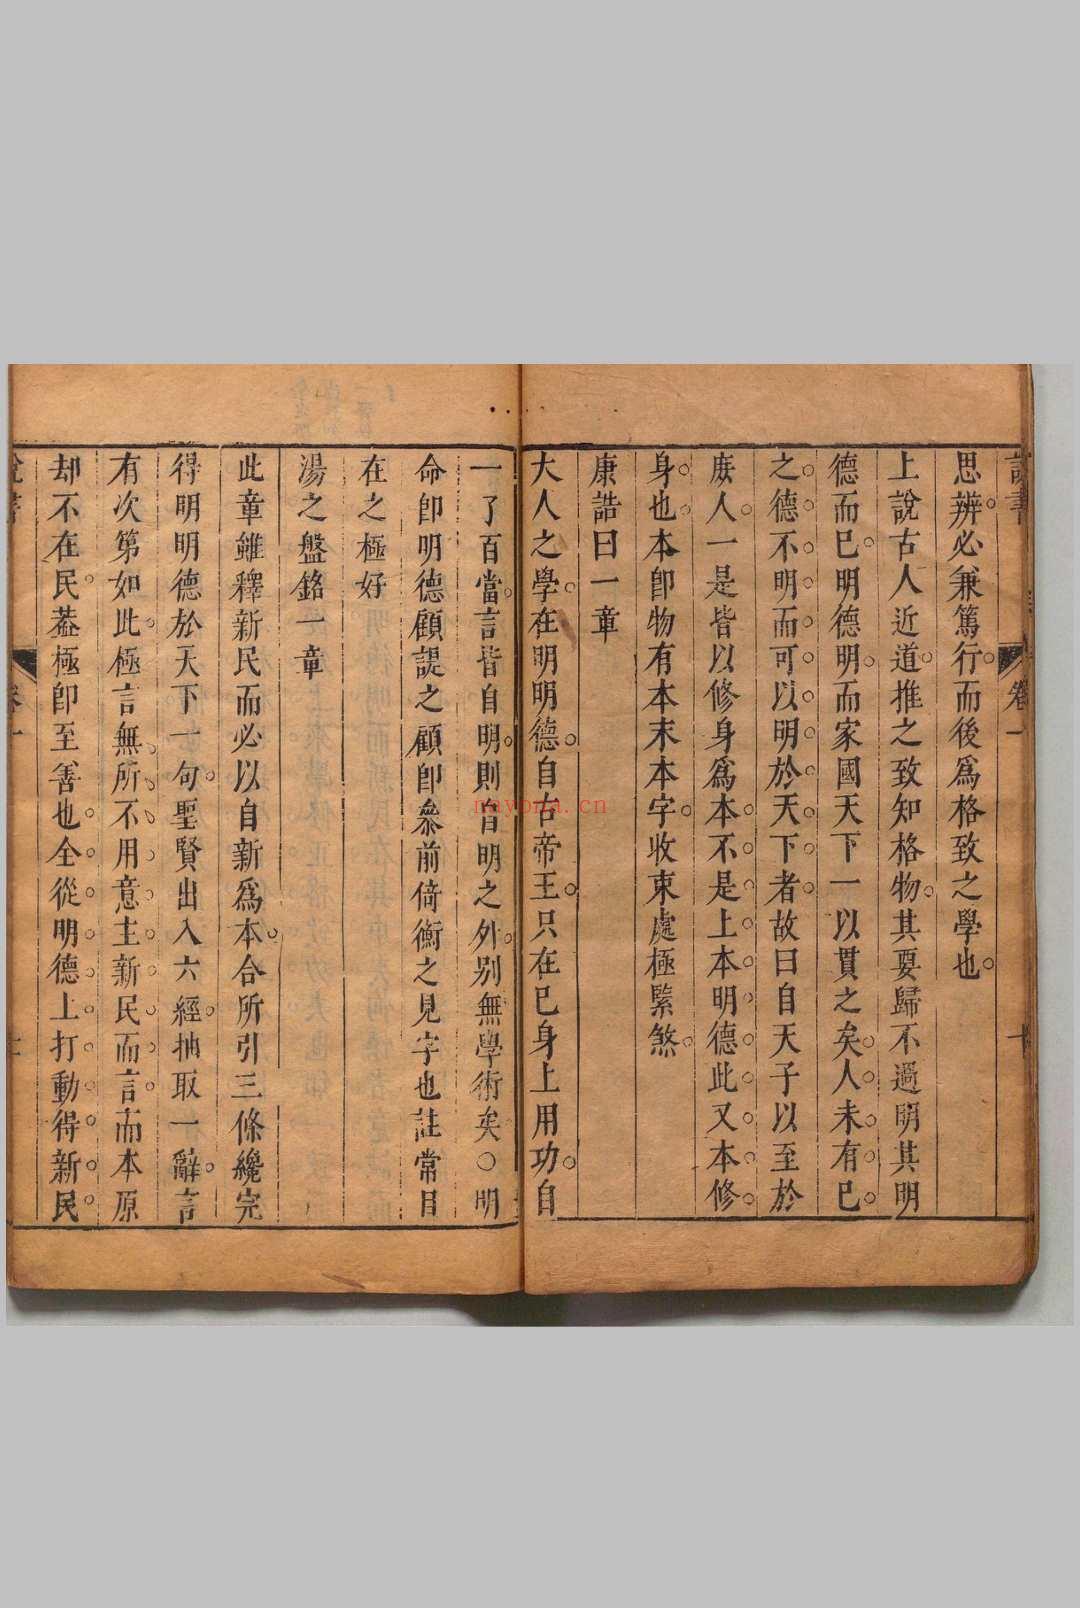 思辨必兼篤行而後爲格致之學也
上說古人近道推之致知格物其要歸不過明其明
德而已明德明而家國天下一以貫之矣人未有已
之德不明而可以明於天下者故曰自天子以至於
庻人一是皆以修身爲本不是上本明德此又本修
身也本卽物有本末本字收束處極緊煞
康誥曰一章
大人之學在明明德自古帝王只在已身上用功自
一了百當言皆自明則自明之外別無學術矣○明
命卽明德顧諟之顧卽叅前倚衡之見字也註常目
在之極好
湯之盤銘一章
此章雖釋新民而必以自新爲本合所引三條纔完
得明明德於天下一句聖賢出入六經抽取一辭言
有次第如此極言無所不用意主新民而言而本原
却不在民葢極卽至善也全從明德上打動得新民
卷一
nayona.cn